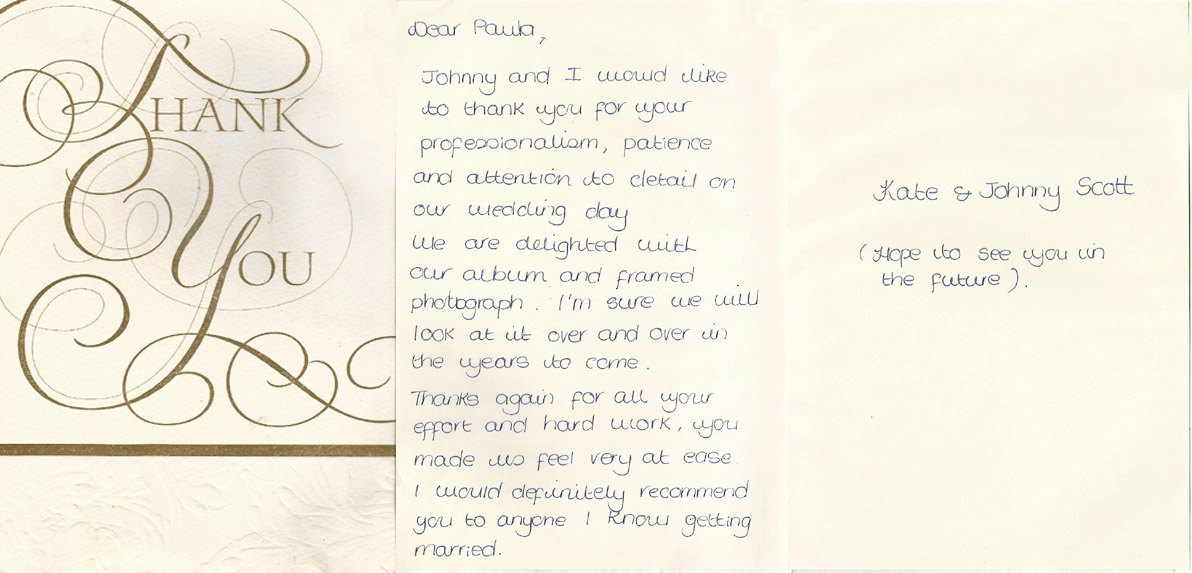 THANK
YOU
Dear Paula,
Johnny and I would like
to thank you for your
professionalism, patience
and attention to detail on
our wedding day
We are delighted with
our album and framed
photograph. I'm sure we will
look at it over and over in
the years to come.
Thanks again for all your
effort and hard work, you
made us feel very at ease
I would definitely recommend
you to anyone I know getting
married.
Kate & Johnny Scott
(Hope to see you in
the future).